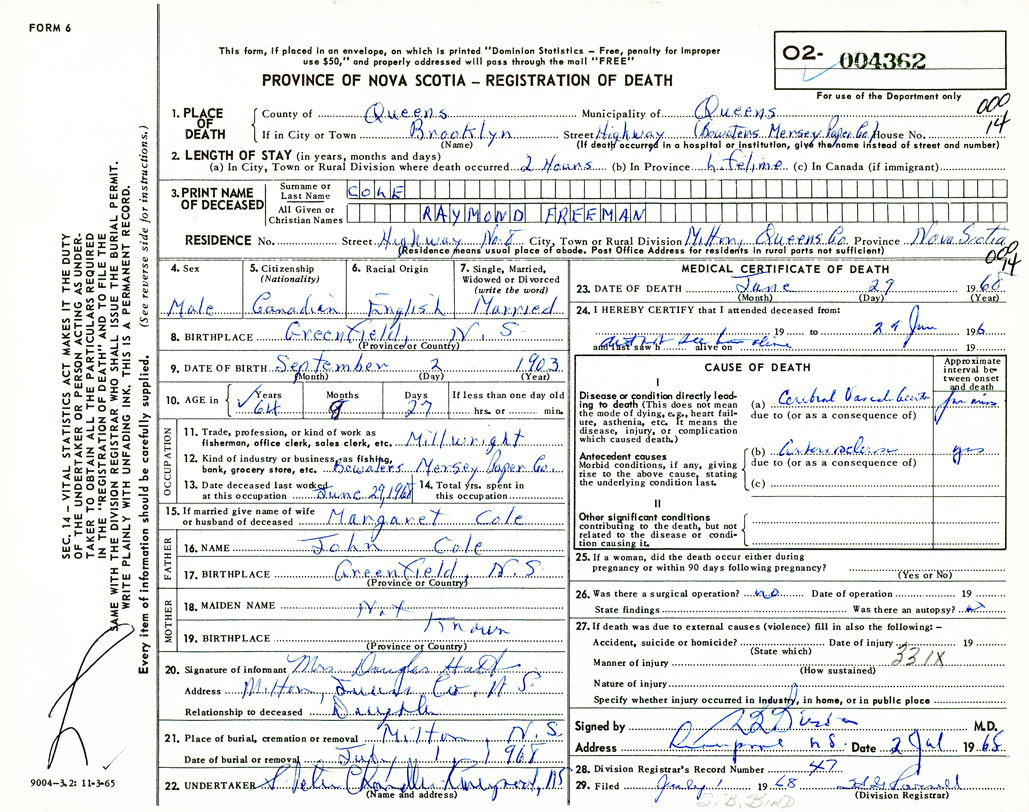 FORM 6
This form, if placed in an envelope, on which is printed "Dominion Statistics – Free, penalty for improper
use $50," and properly addressed will pass through the mail "FREE"
PROVINCE OF NOVA SCOTIA – REGISTRATION OF DEATH
O2- 004362
For use of the Department only
000
14
1. PLACE OF DEATH
County of Queens Municipality of Queens
If in City or Town Brooklyn Street Highway (Bowaters Mersey Paper Co.) House No.
(Name) (If death occurred in a hospital or institution, give the name instead of street and number)
2. LENGTH OF STAY (in years, months and days)
(a) In City, Town or Rural Division where death occurred 2 Hours (b) In Province Lifetime (c) In Canada (if immigrant)
3. PRINT NAME OF DECEASED
Surname or Last Name COLE
All Given or Christian Names RAYMOND FREEMAN
RESIDENCE No. Street Highway No. 8 City, Town or Rural Division Milton, Queens Co. Province Nova Scotia
(Residence means usual place of abode. Post Office Address for residents in rural parts not sufficient)
000
94
4. Sex Male
5. Citizenship (Nationality) Canadian
6. Racial Origin English
7. Single, Married, Widowed or Divorced (write the word) Married
8. BIRTHPLACE Greenfield, N. S.
(Province or Country)
9. DATE OF BIRTH September 2 1903
(Month) (Day) (Year)
10. AGE in Years 64 Months 9 Days 27 If less than one day old
hrs. or min.
OCCUPATION
11. Trade, profession, or kind of work as fisherman, office clerk, sales clerk, etc. Millwright
12. Kind of industry or business, as fishing, bank, grocery store, etc. Bowaters Mersey Paper Co.
13. Date deceased last worked at this occupation June 29, 1968 14. Total yrs. spent in this occupation
15. If married give name of wife or husband of deceased Margaret Cole
FATHER
16. NAME John Cole
17. BIRTHPLACE Greenfield, N.S.
(Province or Country)
MOTHER
18. MAIDEN NAME Not
Known
19. BIRTHPLACE
(Province or Country)
20. Signature of informant Mrs. Douglas Hatt
Address Milton, Queens Co. N.S.
Relationship to deceased Daughter
21. Place of burial, cremation or removal Milton, N.S.
Date of burial or removal July 1 1968
22. UNDERTAKER Chandler Liverpool, NS
(Name and address)
MEDICAL CERTIFICATE OF DEATH
23. DATE OF DEATH June 29 1968
(Month) (Day) (Year)
24. I HEREBY CERTIFY that I attended deceased from:
19 to 29 Jun 196
and last saw h alive on 19
did not see him alive
CAUSE OF DEATH
Approximate interval between onset and death
I
Disease or condition directly leading to death (This does not mean the mode of dying, e.g., heart failure, asthenia, etc. It means the disease, injury, or complication which caused death.)
(a) Cerebral Vascul
due to (or as a consequence of)
Antecedent causes
Morbid conditions, if any, giving rise to the above cause, stating the underlying condition last.
(b) Arteriosclerosis yrs
due to (or as a consequence of)
(c)
II
Other significant conditions contributing to the death, but not related to the disease or condition causing it.
25. If a woman, did the death occur either during
pregnancy or within 90 days following pregnancy?
(Yes or No)
26. Was there a surgical operation? no Date of operation 19
State findings Was there an autopsy? no
27. If death was due to external causes (violence) fill in also the following: –
Accident, suicide or homicide? Date of injury 19
(State which)
Manner of injury 331X
(How sustained)
Nature of injury
Specify whether injury occurred in industry, in home, or in public place
Signed by M.D.
Address Liverpool N.S. Date 2 Jul 1968
28. Division Registrar's Record Number 47
29. Filed July 1 1968
(Division Registrar)
SEC. 14 – VITAL STATISTICS ACT MAKES IT THE DUTY
OF THE UNDERTAKER OR PERSON ACTING AS UNDER-
TAKER TO OBTAIN ALL THE PARTICULARS REQUIRED
IN THE "REGISTRATION OF DEATH" AND TO FILE THE
SAME WITH THE DIVISION REGISTRAR WHO SHALL ISSUE THE BURIAL PERMIT.
WRITE PLAINLY WITH UNFADING INK. THIS IS A PERMANENT RECORD.
Every item of information should be carefully supplied. (See reverse side for instructions.)
9004–3.2: 11-3-65